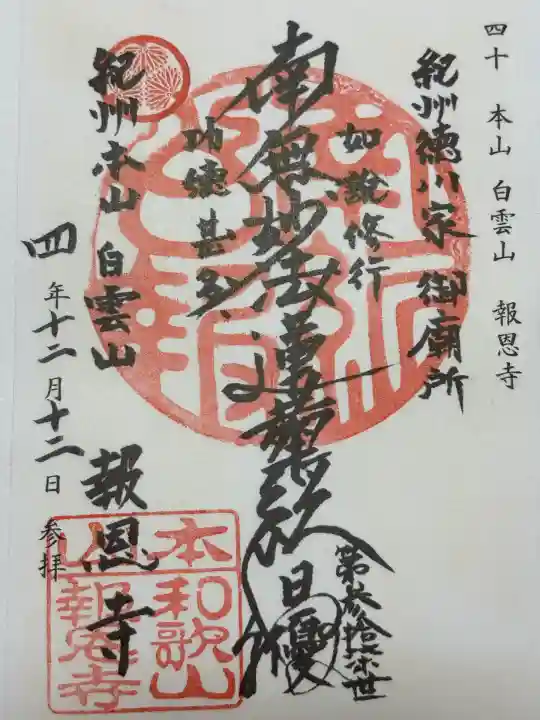 四十 本山 白雲山 報恩寺
紀州徳川家 御廟所
如説修行
南無妙法蓮華経 日優
第参拾
世
功徳甚多
紀州本山 白雲山
報恩寺
四年十二月十二日 参拝
本山
和歌山
報恩寺